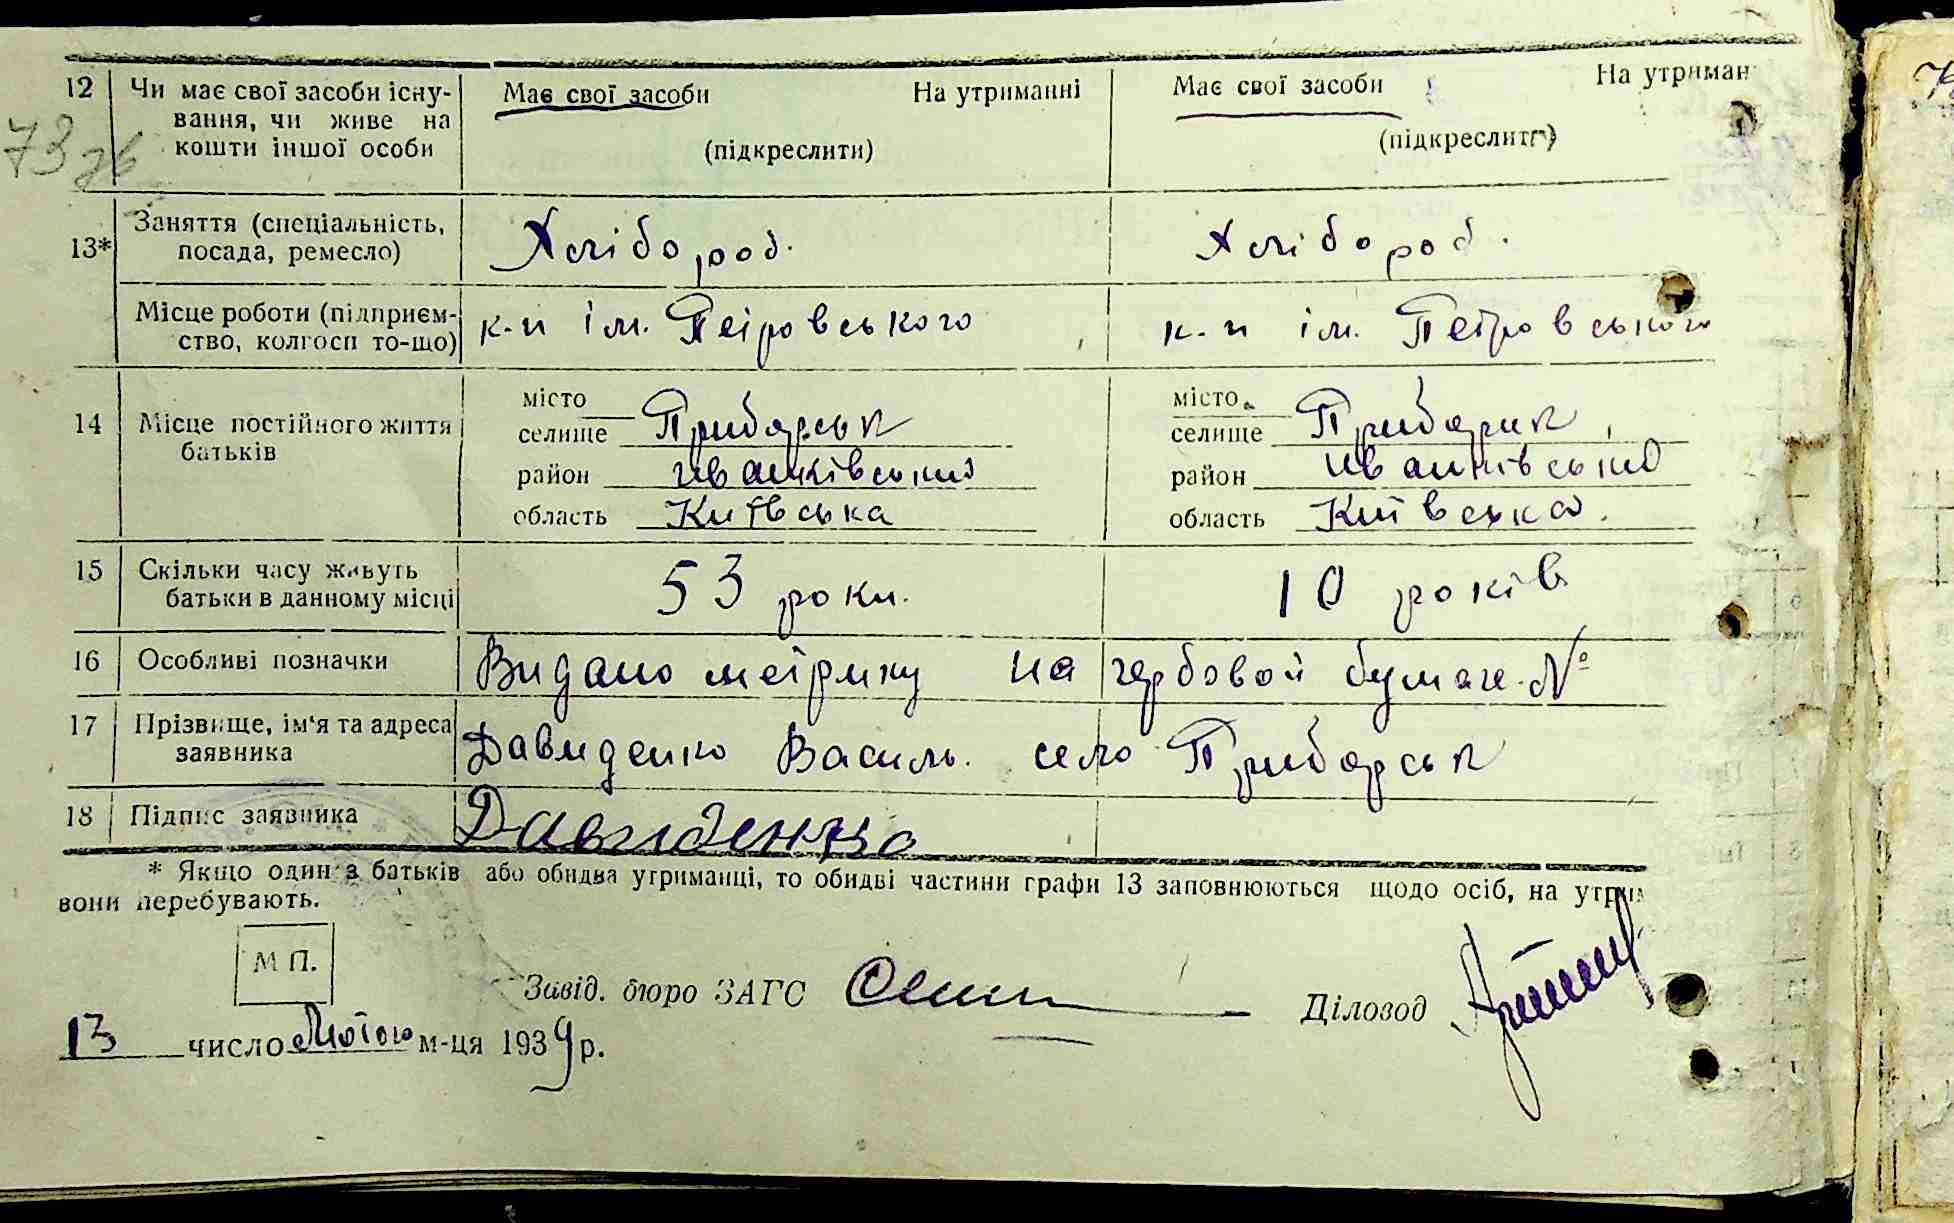 12 Чи має свої засоби існу- Має свої засоби На утриманні Має свої засоби На утриман
вання, чи живе на
кошти іншої особи (підкреслити) (підкреслити)
73 зв
13* Заняття (спеціальність, посада, ремесло) Хлібороб. Хлібороб.
Місце роботи (підприєм- к-п ім. Петровського к-п ім. Петровського
ство, колгосп то-що)
14 Місце постійного життя батьків
місто Прибарськ місто Прибарск
селище селище
район Иванківський район Иванківський
область Київська область Київська.
15 Скільки часу живуть 53 роки. 10 років
батьки в данному місці
16 Особливі позначки Видано метрику на гербовой бумаге №
17 Прізвище, ім'я та адреса Давиденко Василь. село Прибарськ
заявника
18 Підпис заявника Давиденко
* Якщо один з батьків або обидва утриманці, то обидві частини графи 13 заповнюються щодо осіб, на утрим
вони перебувають.
М П.
Завід. бюро ЗАГС Діловод
13 число Лютого м-ця 1939 р.